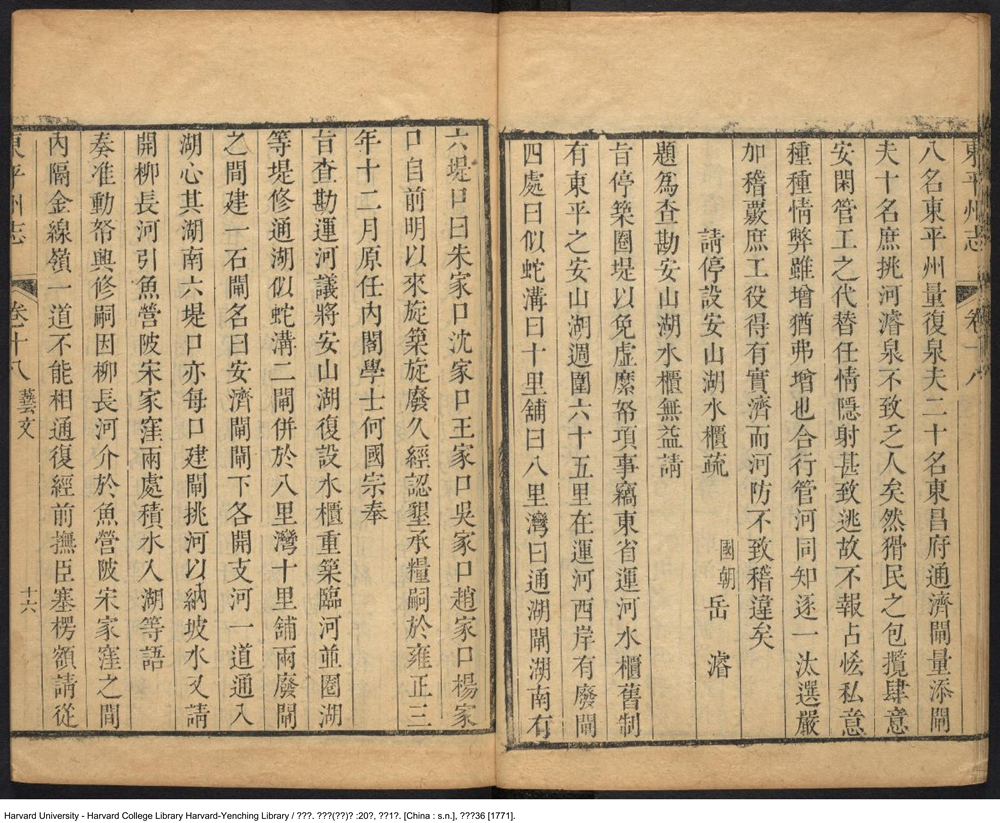 東平州志
卷十八
八名東平州量復泉夫二十名東昌府通濟閘量添閘
夫十名庶挑河濬泉不致乏人矣然猾民之包攬肆意
安閑管工之代替任情隱射甚致逃故不報占恡私意
種種情弊雖增猶弗增也合行管河同知逐一汰選嚴
加稽覈庶工役得有實濟而河防不致稽違矣
請停設安山湖水櫃疏
國朝岳濬
題爲查勘安山湖水櫃無益請
旨停築圈堤以免虛縻帑項事竊東省運河水櫃舊制
有東平之安山湖週圍六十五里在運河西岸有廢閘
四處曰似蛇溝曰十里舖曰八里灣曰通湖閘湖南有
六堤口曰朱家口沈家口王家口吳家口趙家口楊家
口自前明以來旋築旋廢久經認墾承糧嗣於雍正三
年十二月原任內閣學士何國宗奉
旨查勘運河議將安山湖復設水櫃重築臨河並圈湖
等堤修通湖似蛇溝二閘併於八里灣十里舖兩廢閘
之間建一石閘名曰安濟閘閘下各開支河一道通入
湖心其湖南六堤口亦每口建閘挑河以納坡水又請
開柳長河引魚營陂宋家窪兩處積水入湖等語
奏准動帑興修嗣因柳長河介於魚營陂宋家窪之間
內隔金線嶺一道不能相通復經前撫臣塞楞額請從
東平州志
卷十八
藝文
十六
Harvard University - Harvard College Library Harvard-Yenching Library / ???. ???(??)? :20?, ??1?. [China : s.n.], ???36 [1771].